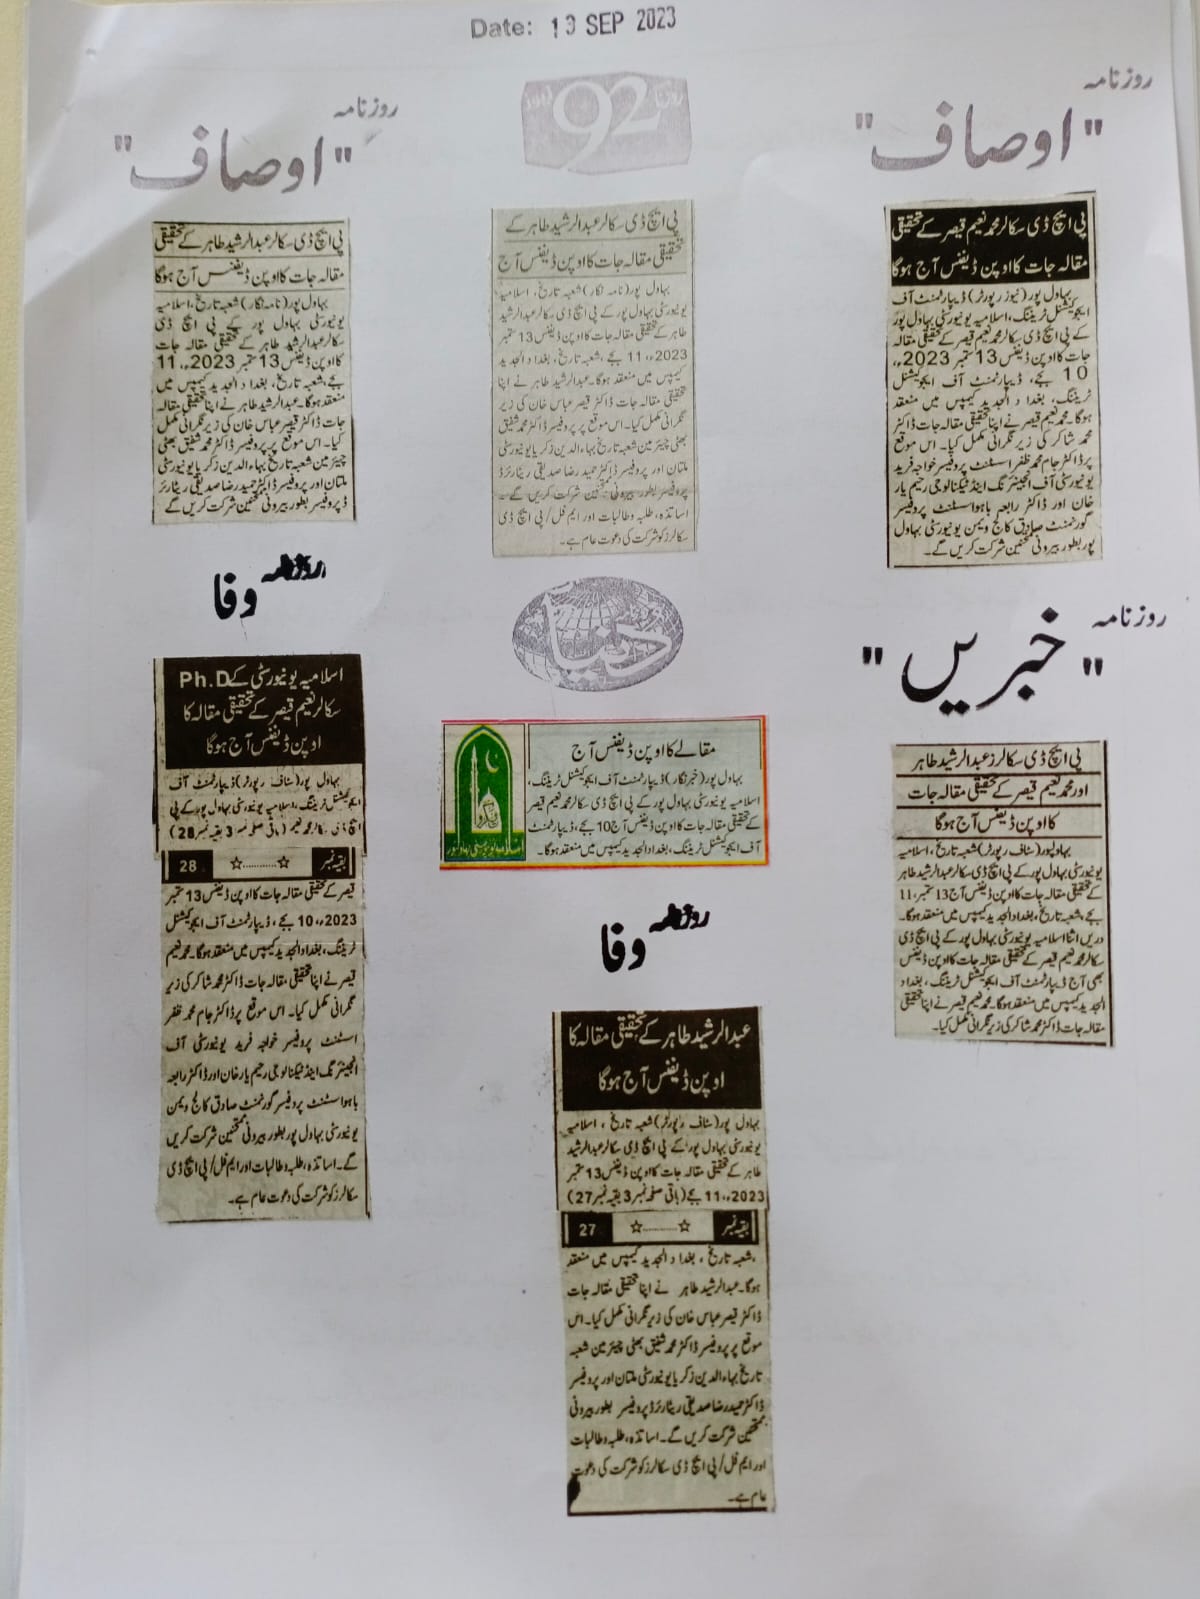 Date: 13 SEP 2023
روزنامہ
"اوصاف"
پی ایچ ڈی سکالر محمد نعیم قیصر کے تحقیقی
مقالہ جات کا اوپن ڈیفنس آج ہوگا
بہاول پور (نیوز رپورٹر) ڈیپارٹمنٹ آف
ایجوکیشنل ٹریننگ، اسلامیہ یونیورسٹی بہاول پور
کے پی ایچ ڈی سکالر محمد نعیم قیصر کے تحقیقی مقالہ
جات کا اوپن ڈیفنس 13 ستمبر 2023ء،
10 بجے، ڈیپارٹمنٹ آف ایجوکیشنل
ٹریننگ، بغداد الجدید کیمپس میں منعقد
ہوگا۔ محمد نعیم قیصر نے اپنا تحقیقی مقالہ جات ڈاکٹر
محمد شاکر کی زیر نگرانی مکمل کیا۔ اس موقع
پر ڈاکٹر جام محمد ظفر اسسٹنٹ پروفیسر خواجہ فرید
یونیورسٹی آف انجینئرنگ اینڈ ٹیکنالوجی رحیم یار
خان اور ڈاکٹر رابعہ باہو اسسٹنٹ پروفیسر
گورنمنٹ صادق کالج ویمن یونیورسٹی بہاول
پور بطور بیرونی ممتحنین شرکت کریں گے۔
روزنامہ 92 نیوز
پی ایچ ڈی سکالر عبدالرشید طاہر کے
تحقیقی مقالہ جات کا اوپن ڈیفنس آج
بہاول پور (نامہ نگار) شعبہ تاریخ، اسلامیہ
یونیورسٹی بہاول پور کے پی ایچ ڈی سکالر عبدالرشید
طاہر کے تحقیقی مقالہ جات کا اوپن ڈیفنس 13 ستمبر
2023ء، 11 بجے، شعبہ تاریخ، بغداد الجدید
کیمپس میں منعقد ہوگا۔ عبدالرشید طاہر نے اپنا
تحقیقی مقالہ جات ڈاکٹر قیصر عباس خان کی زیر
نگرانی مکمل کیا۔ اس موقع پر پروفیسر ڈاکٹر محمد شفیق
بھٹی چیئرمین شعبہ تاریخ بہاء الدین زکریا یونیورسٹی
ملتان اور پروفیسر ڈاکٹر حمید رضا صدیقی ریٹائرڈ
پروفیسر بطور بیرونی ممتحنین شرکت کریں گے۔
اساتذہ، طلبہ و طالبات اور ایم فل/ پی ایچ ڈی
سکالرز کو شرکت کی دعوت عام ہے۔
روزنامہ
"اوصاف"
پی ایچ ڈی سکالر عبدالرشید طاہر کے تحقیقی
مقالہ جات کا اوپن ڈیفنس آج ہوگا
بہاول پور (نامہ نگار) شعبہ تاریخ، اسلامیہ
یونیورسٹی بہاول پور کے پی ایچ ڈی
سکالر عبدالرشید طاہر کے تحقیقی مقالہ جات
کا اوپن ڈیفنس 13 ستمبر 2023ء، 11
بجے، شعبہ تاریخ، بغداد الجدید کیمپس میں
منعقد ہوگا۔ عبدالرشید طاہر نے اپنا تحقیقی مقالہ
جات ڈاکٹر قیصر عباس خان کی زیر نگرانی مکمل
کیا۔ اس موقع پر پروفیسر ڈاکٹر محمد شفیق بھٹی
چیئرمین شعبہ تاریخ بہاء الدین زکریا یونیورسٹی
ملتان اور پروفیسر ڈاکٹر حمید رضا صدیقی ریٹائرڈ
پروفیسر بطور بیرونی ممتحنین شرکت کریں گے
روزنامہ
"خبریں"
پی ایچ ڈی سکالرز عبدالرشید طاہر
اور محمد نعیم قیصر کے تحقیقی مقالہ جات
کا اوپن ڈیفنس آج ہوگا
بہاولپور (سٹاف رپورٹر) شعبہ تاریخ، اسلامیہ
یونیورسٹی بہاول پور کے پی ایچ ڈی سکالر عبدالرشید طاہر
کے تحقیقی مقالہ جات کا اوپن ڈیفنس آج 13 ستمبر، 11
بجے، شعبہ تاریخ، بغداد الجدید کیمپس میں منعقد ہوگا۔
دریں اثنا اسلامیہ یونیورسٹی بہاول پور کے پی ایچ ڈی
سکالر محمد نعیم قیصر کے تحقیقی مقالہ جات کا اوپن ڈیفنس
بھی آج ڈیپارٹمنٹ آف ایجوکیشنل ٹریننگ، بغداد
الجدید کیمپس میں منعقد ہوگا۔ محمد نعیم قیصر نے اپنا تحقیقی
مقالہ جات ڈاکٹر محمد شاکر کی زیر نگرانی مکمل کیا۔
دنیا
مقالے کا اوپن ڈیفنس آج
بہاول پور (خبر نگار) ڈیپارٹمنٹ آف ایجوکیشنل ٹریننگ،
اسلامیہ یونیورسٹی بہاول پور کے پی ایچ ڈی سکالر محمد نعیم قیصر
کے تحقیقی مقالہ جات کا اوپن ڈیفنس آج 10 بجے، ڈیپارٹمنٹ
آف ایجوکیشنل ٹریننگ، بغداد الجدید کیمپس میں منعقد ہوگا۔
اسلامیہ یونیورسٹی بہاولپور
روزنامہ
وفا
اسلامیہ یونیورسٹی کے Ph.D
سکالر نعیم قیصر کے تحقیقی مقالہ کا
اوپن ڈیفنس آج ہوگا
بہاول پور (سٹاف رپورٹر) ڈیپارٹمنٹ آف
ایجوکیشنل ٹریننگ، اسلامیہ یونیورسٹی بہاول پور کے پی
ایچ ڈی سکالر محمد نعیم (باقی صفحہ نمبر 3 بقیہ نمبر 28)
بقیہ نمبر ☆..........☆ 28
قیصر کے تحقیقی مقالہ جات کا اوپن ڈیفنس 13 ستمبر
2023ء، 10 بجے، ڈیپارٹمنٹ آف ایجوکیشنل
ٹریننگ، بغداد الجدید کیمپس میں منعقد ہوگا۔ محمد نعیم
قیصر نے اپنا تحقیقی مقالہ جات ڈاکٹر محمد شاکر کی زیر
نگرانی مکمل کیا۔ اس موقع پر ڈاکٹر جام محمد ظفر
اسسٹنٹ پروفیسر خواجہ فرید یونیورسٹی آف
انجینئرنگ اینڈ ٹیکنالوجی رحیم یار خان اور ڈاکٹر رابعہ
باہو اسسٹنٹ پروفیسر گورنمنٹ صادق کالج ویمن
یونیورسٹی بہاول پور بطور بیرونی ممتحنین شرکت کریں
گے۔ اساتذہ، طلبہ و طالبات اور ایم فل/ پی ایچ ڈی
سکالرز کو شرکت کی دعوت عام ہے۔
روزنامہ
وفا
عبدالرشید طاہر کے تحقیقی مقالہ کا
اوپن ڈیفنس آج ہوگا
بہاول پور (سٹاف رپورٹر) شعبہ تاریخ، اسلامیہ
یونیورسٹی بہاول پور کے پی ایچ ڈی سکالر عبدالرشید
طاہر کے تحقیقی مقالہ جات کا اوپن ڈیفنس 13 ستمبر
2023ء، 11 بجے (باقی صفحہ نمبر 3 بقیہ نمبر 27)
بقیہ نمبر ☆..........☆ 27
،شعبہ تاریخ، بغداد الجدید کیمپس میں منعقد
ہوگا۔ عبدالرشید طاہر نے اپنا تحقیقی مقالہ جات
ڈاکٹر قیصر عباس خان کی زیر نگرانی مکمل کیا۔ اس
موقع پر پروفیسر ڈاکٹر محمد شفیق بھٹی چیئرمین شعبہ
تاریخ بہاء الدین زکریا یونیورسٹی ملتان اور پروفیسر
ڈاکٹر حمید رضا صدیقی ریٹائرڈ پروفیسر بطور بیرونی
ممتحنین شرکت کریں گے۔ اساتذہ، طلبہ و طالبات
اور ایم فل/ پی ایچ ڈی سکالرز کو شرکت کی دعوت
عام ہے۔